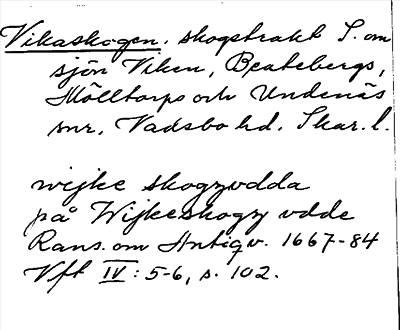 Vikaskogen. skogstrakt S. om
sjön Viken, Beatebergs,
Mölltorps och Undenäs
snr, Vadsbo hd. Skar. l.
wijke skogzvdda
på Wijkeskogz vdde
Rans. om Antiqv. 1667-84
Vft IV: 5-6, s. 102.